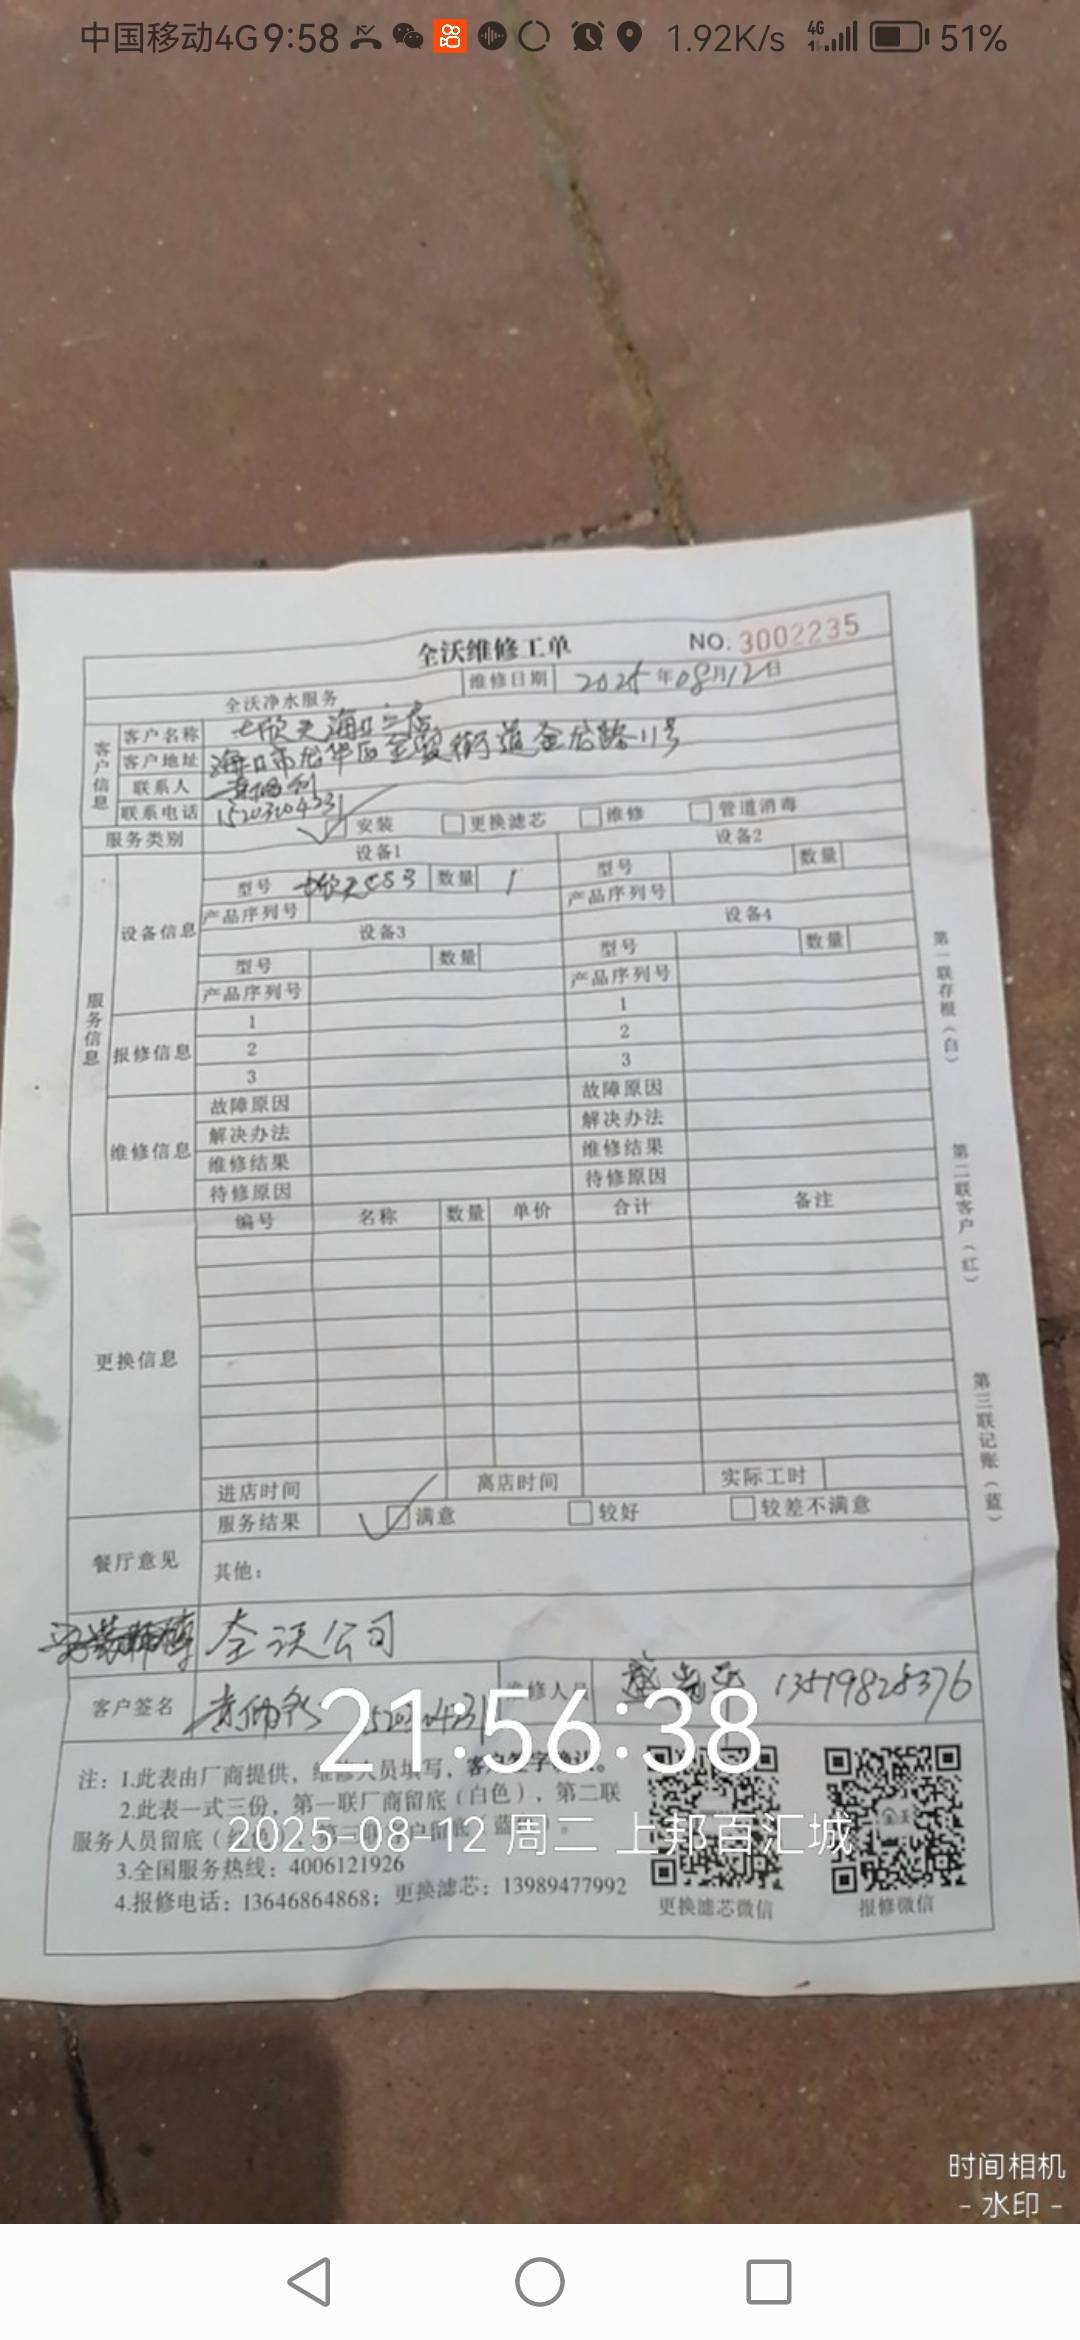 中国移动4G 9:58 1.92K/s 4G 51%
全沃维修工单 NO. 3002235
全沃净水服务 维修日期 2025年08月12日
客户信息
客户名称 七欣天海口三店
客户地址 海口市龙华区金贸街道金龙路11号
联系人
联系电话 15203204331
服务类别 安装 更换滤芯 维修 管道消毒
服务信息
设备信息
设备1 设备2
型号 七欣天C53 数量 1 型号 数量
产品序列号 产品序列号
设备3 设备4
型号 数量 型号 数量
产品序列号 产品序列号
报修信息
1 1
2 2
3 3
维修信息
故障原因 故障原因
解决办法 解决办法
维修结果 维修结果
待修原因 待修原因
更换信息
编号 名称 数量 单价 合计 备注
进店时间 离店时间 实际工时
餐厅意见
服务结果 满意 较好 较差不满意
其他：
全沃公司
客户签名 维修人员 13519828376
注：1.此表由厂商提供，维修人员填写，客户签字确认。
2.此表一式三份，第一联厂商留底（白色），第二联
服务人员留底（红色），第三联客户留底（蓝色）。
3.全国服务热线：4006121926
4.报修电话：13646864868；更换滤芯：13989477992
更换滤芯微信 报修微信
第一联存根（白）
第二联客户（红）
第三联记账（蓝）
21:56:38
2025-08-12 周二 上邦百汇城
时间相机
- 水印 -